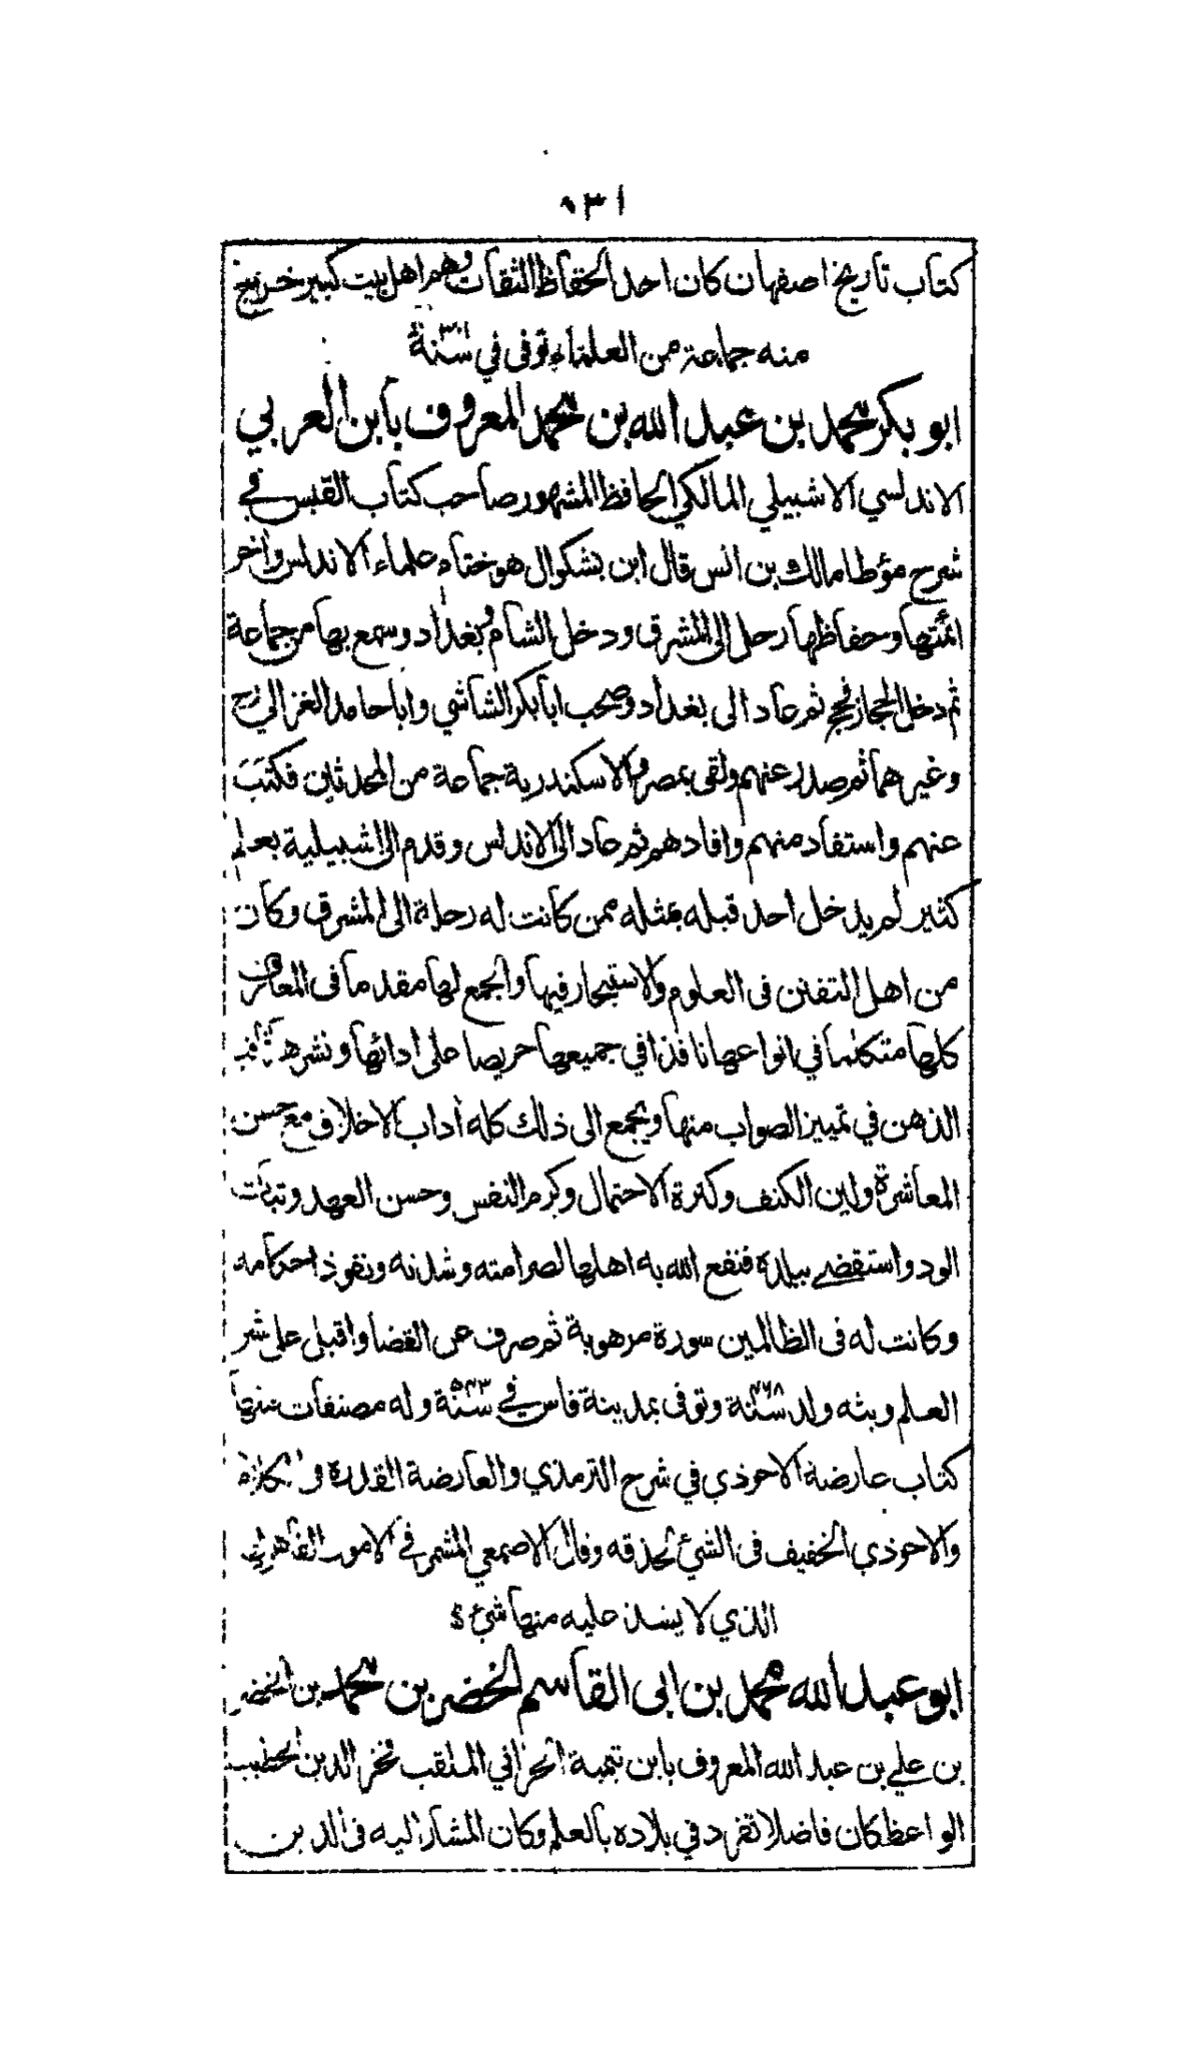 كتاب تاريخ اصفهان كان احد الحفاظ الثقات وهم اهل بيت كبير خرج
منه جماعة من العلماء توفى في سنة ٣٠١
ابو بكر محمد بن عبد الله بن محمد المعروف بابن العربي
الاندلسي الاشبيلي المالكي الحافظ المشهور صاحب كتاب القبس في
شرح مؤطا مالك بن انس قال ابن بشكوال هو ختام علماء الاندلس واخر
ائمتها وحفاظها رحل الى المشرق ودخل الشام وبغداد وسمع بها من جماعة
ثم دخل الحجاز فحج ثم عاد الى بغداد وصحب ابا بكر الشاشي وابا حامد الغزالي رح
وغيرهما ثم صدر عنهم ولقى بمصر والاسكندرية جماعة من المحدثين فكتب
عنهم واستفاد منهم وافادهم ثم عاد الى الاندلس وقدم الى اشبيلية بعلم
كثير لم يدخل احد قبله بمثله ممن كانت له رحلة الى المشرق وكان
من اهل التفنن فى العلوم والاستبحار فيها والجمع لها مقدما فى المعارف
كلها متكلما في انواعها نافذا في جميعها حريصا على ادائها ونشرها ثاقب
الذهن في تمييز الصواب منها ويجمع الى ذلك كله آداب الاخلاق مع حسن
المعاشرة ولين الكنف وكثرة الاحتمال وكرم النفس وحسن العهد وثبات
الود واستقضى ببلده فنفع الله به اهلها لصرامته وشدته ونفوذ احكامه
وكانت له فى الظالمين سورة مرهوبة ثم صرف عن القضا واقبل على نشر
العلم وبثه ولد سنة ٤٦٨ وتوفى بمدينة فاس في سنة ٥٤٣ وله مصنفات منها
كتاب عارضة الاحوذي في شرح الترمذي والعارضة القدرة و
والاحوذي الخفيف فى الشئ لحذقه وقال الاصمعي المشمر في الامور القاهر لها
الذي لا يشذ عليه منها شئ
ابو عبد الله محمد بن ابى القاسم الخضر بن محمد بن الخضر
بن علي بن عبد الله المعروف بابن تيمية الحراني الملقب فخر الدين الخطيب
الواعظ كان فاضلا تفرد في بلاده بالعلم وكان المشار اليه فى الدين